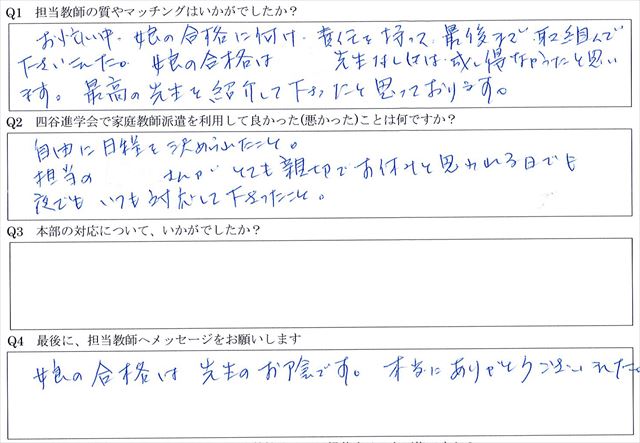 Q1 担当教師の質やマッチングはいかがでしたか？
お忙い中、娘の合格に向け、責任を持って、最後まで取組んで
下さいました。娘の合格は 先生なしには成し得なかったと思い
ます。最高の先生を紹介して下さったと思っております。
Q2 四谷進学会で家庭教師派遣を利用して良かった(悪かった)ことは何ですか？
自由に日程を決められたこと。
担当の さんがとても親切でお休みと思われる日でも
夜でもいつも対応して下さったこと。
Q3 本部の対応について、いかがでしたか？
Q4 最後に、担当教師へメッセージをお願いします
娘の合格は先生のお陰です。本当にありがとうございました。